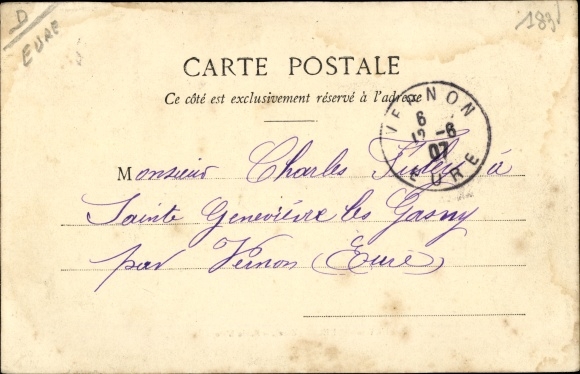 D
EURE
183
CARTE POSTALE
Ce côté est exclusivement réservé à l'adresse
VERNON
6
12 -6
07
EURE
Monsieur Charles à
Sainte Geneviève les Gasny
par Vernon (Eure)